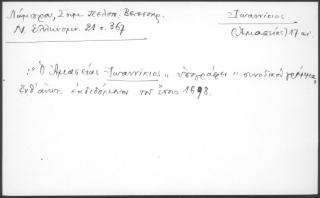 Λάμπρου, Σημ. Πελοπ. Βενετοκρ.
Ν. Ἑλληνομν. 21 σ. 367
Ἰωαννίκιος
(Ἀμασείας) 17 αι.
: "Ὁ Ἀμασείας Ἰωαννίκιος" ὑπογράφει "συνοδικὸν γράμμα,
ἐκδιδόμενον τοῦ ἔτους 1698.